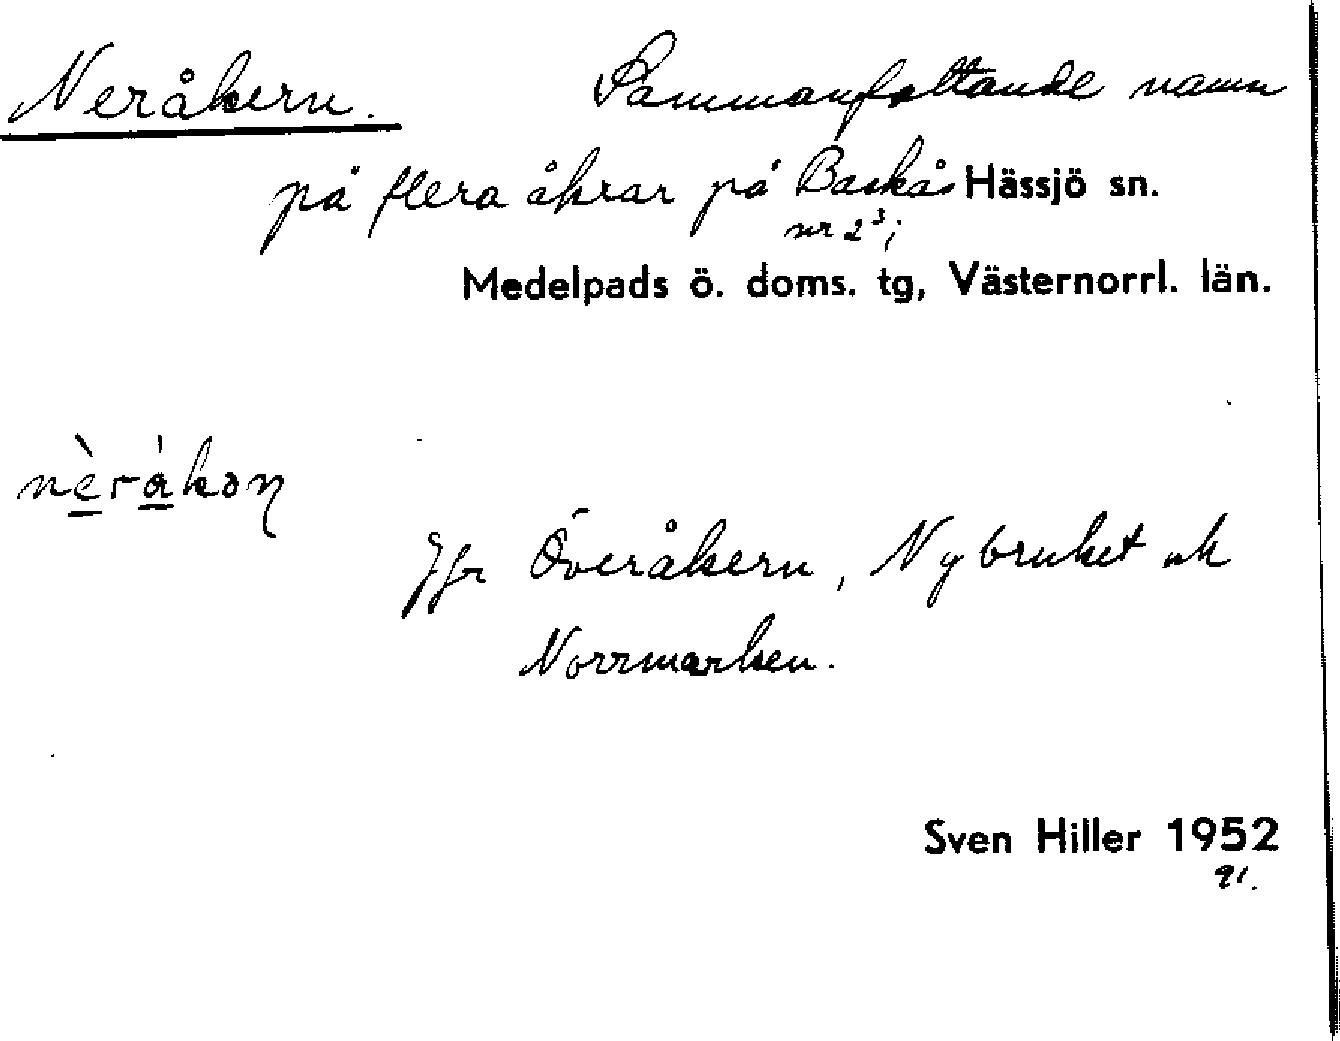 Neråkern. Sammanfattande namn
på flera åkrar på Baskås Hässjö sn.
nr 2³;
Medelpads ö. doms. tg, Västernorrl. län.
nèråkən
Jfr Överåkern, Nybruket och
Norrmarken.
Sven Hiller 1952